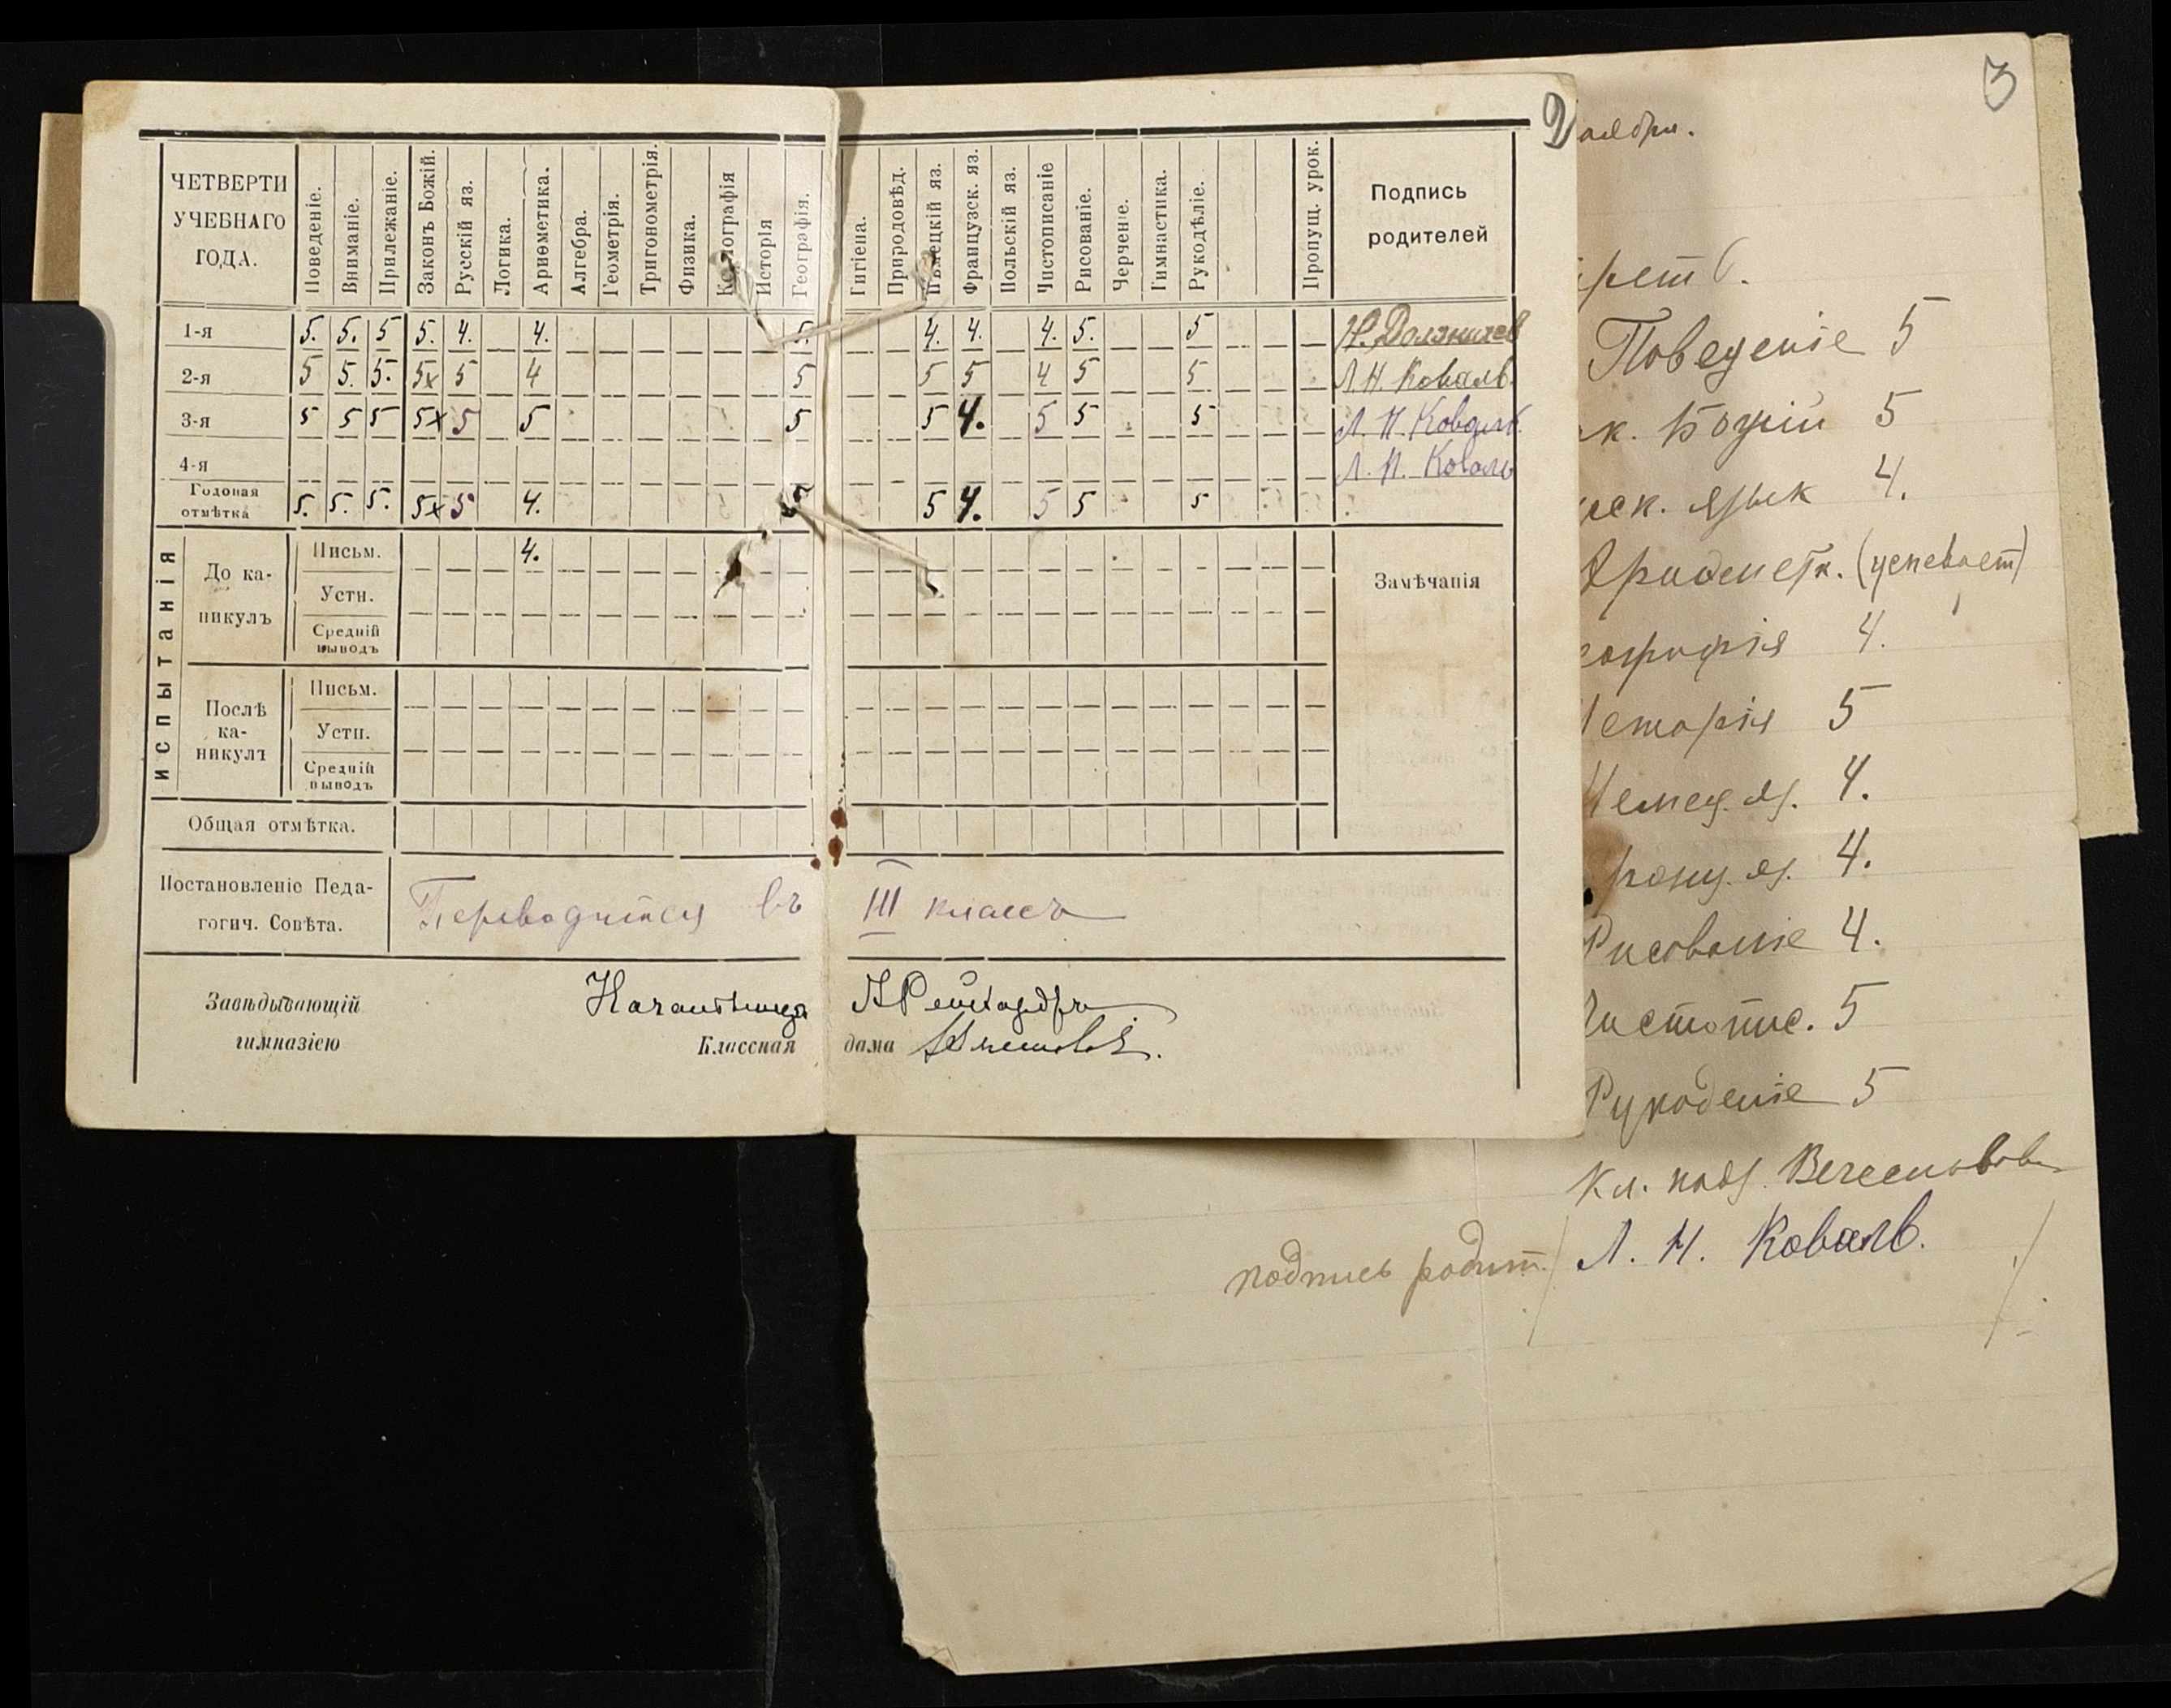 2
3
ЧЕТВЕРТИ УЧЕБНАГО ГОДА.
Поведеніе.
Вниманіе.
Прилежаніе.
Законъ Божій.
Русскій яз.
Логика.
Ариѳметика.
Алгебра.
Геометрія.
Тригонометрія.
Физика.
Космографія
Исторія
Географія.
Гигіена.
Природовѣд.
Нѣмецкій яз.
Французск. яз.
Польскій яз.
Чистописаніе
Рисованіе.
Черченіе.
Гимнастика.
Рукодѣліе.
Пропущ. урок.
Подпись
родителей
1-я 5. 5. 5 5. 4. 4. 5. 4. 4. 4. 5. 5
2-я 5 5. 5. 5x 5 4 5 5 5 4 5 5 Л Н. Коваль.
3-я 5 5 5 5x 5 5 5 5 4. 5 5 5 Л. Н. Коваль.
4-я Л. Н. Коваль
Годовая
отмѣтка 5. 5. 5. 5x 5 4. 5 5 4. 5 5 5
ИСПЫТАНІЯ
До ка-
никулъ
Письм. 4.
Устн.
Средній
выводъ
Замѣчанія
Послѣ
ка-
никулъ
Письм.
Устн.
Средній
выводъ
Общая отмѣтка.
Постановленіе Педа-
гогич. Совѣта.
Переводится въ III классъ
Завѣдывающій
гимназіею
Начальница
Классная дама
Поведеніе 5
к. Божій 5
язык 4.
Арифметк. (успевает)
4.
сторія 5
Немец. яз. 4.
ранц. яз. 4.
Рисованіе 4.
Чистопис. 5
Рукоделіе 5
Кл. надз.
подпись родит. / Л. Н. Коваль. /